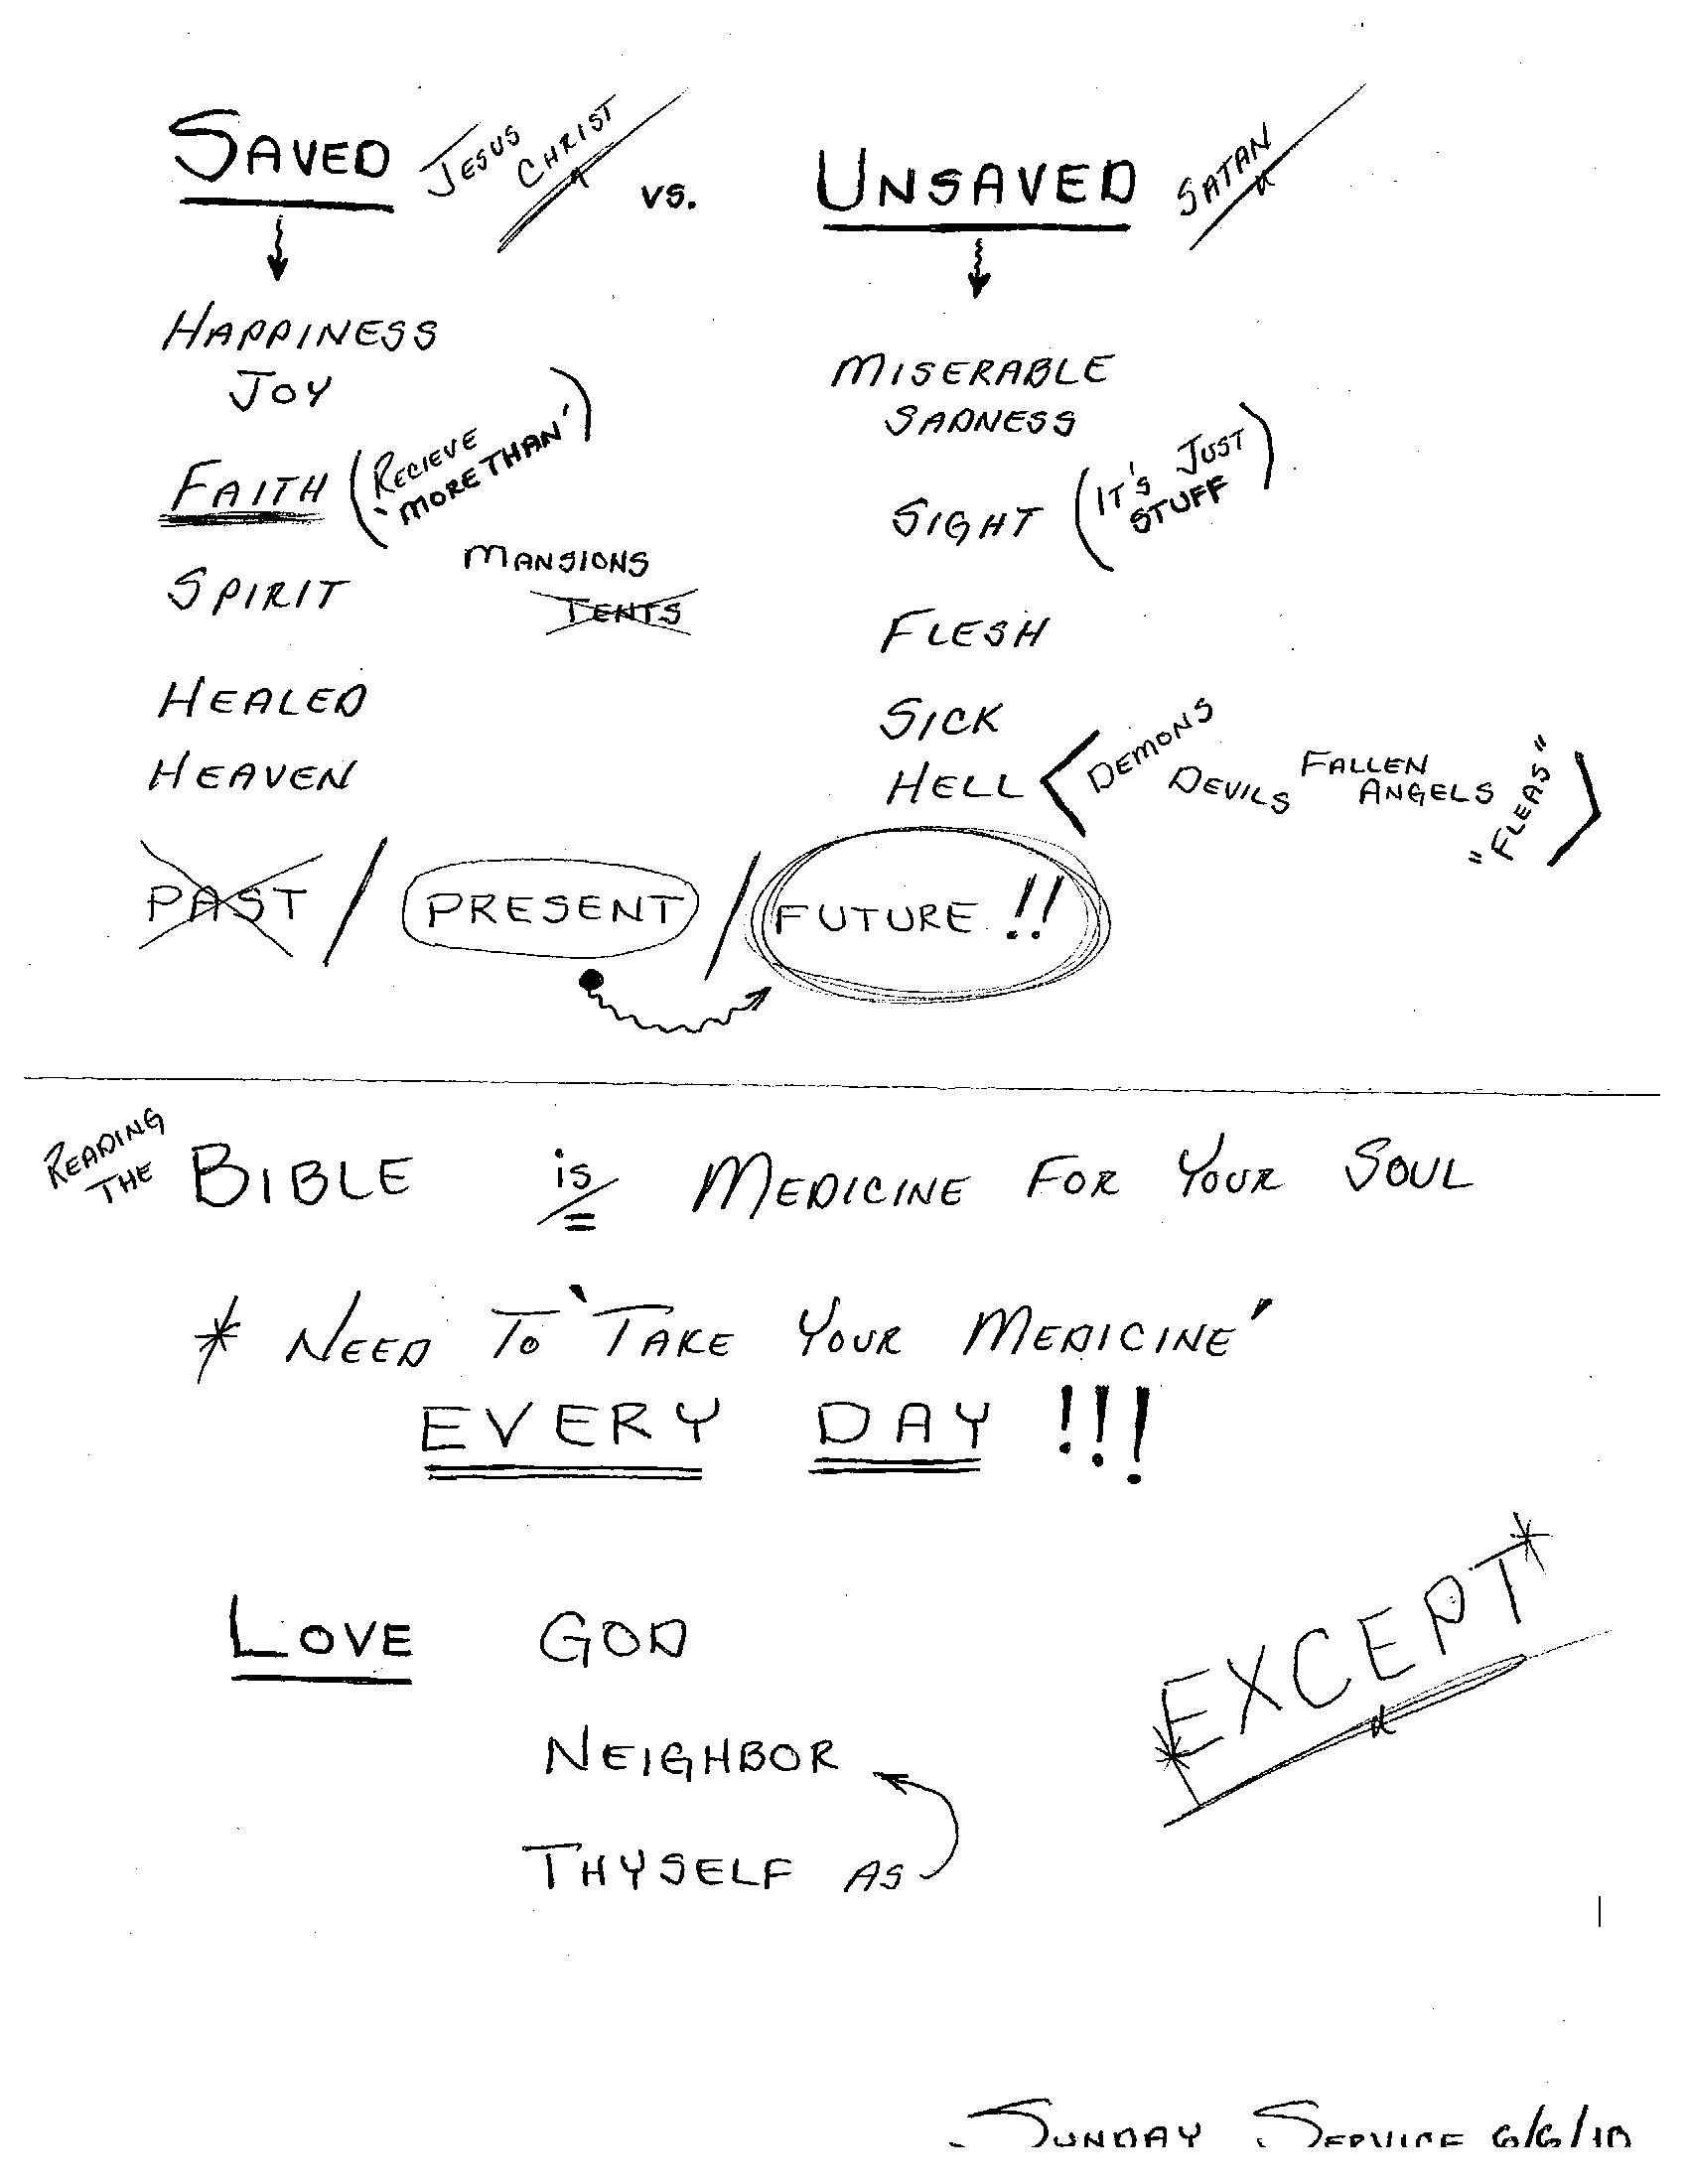 SAVED JESUS CHRIST vs. UNSAVED SATAN
HAPPINESS
JOY
FAITH (RECIEVE
'MORE THAN')
SPIRIT
MANSIONS
TENTS
HEALED
HEAVEN
MISERABLE
SADNESS
SIGHT (IT'S JUST
STUFF)
FLESH
SICK
HELL < DEMONS DEVILS FALLEN ANGELS "FLEAS" >
PAST / PRESENT / FUTURE !!
READING THE BIBLE is MEDICINE FOR YOUR SOUL
* NEED TO 'TAKE YOUR MEDICINE'
EVERY DAY !!!
LOVE GOD
NEIGHBOR
THYSELF AS
*EXCEPT*
SUNDAY SERVICE 6/6/10